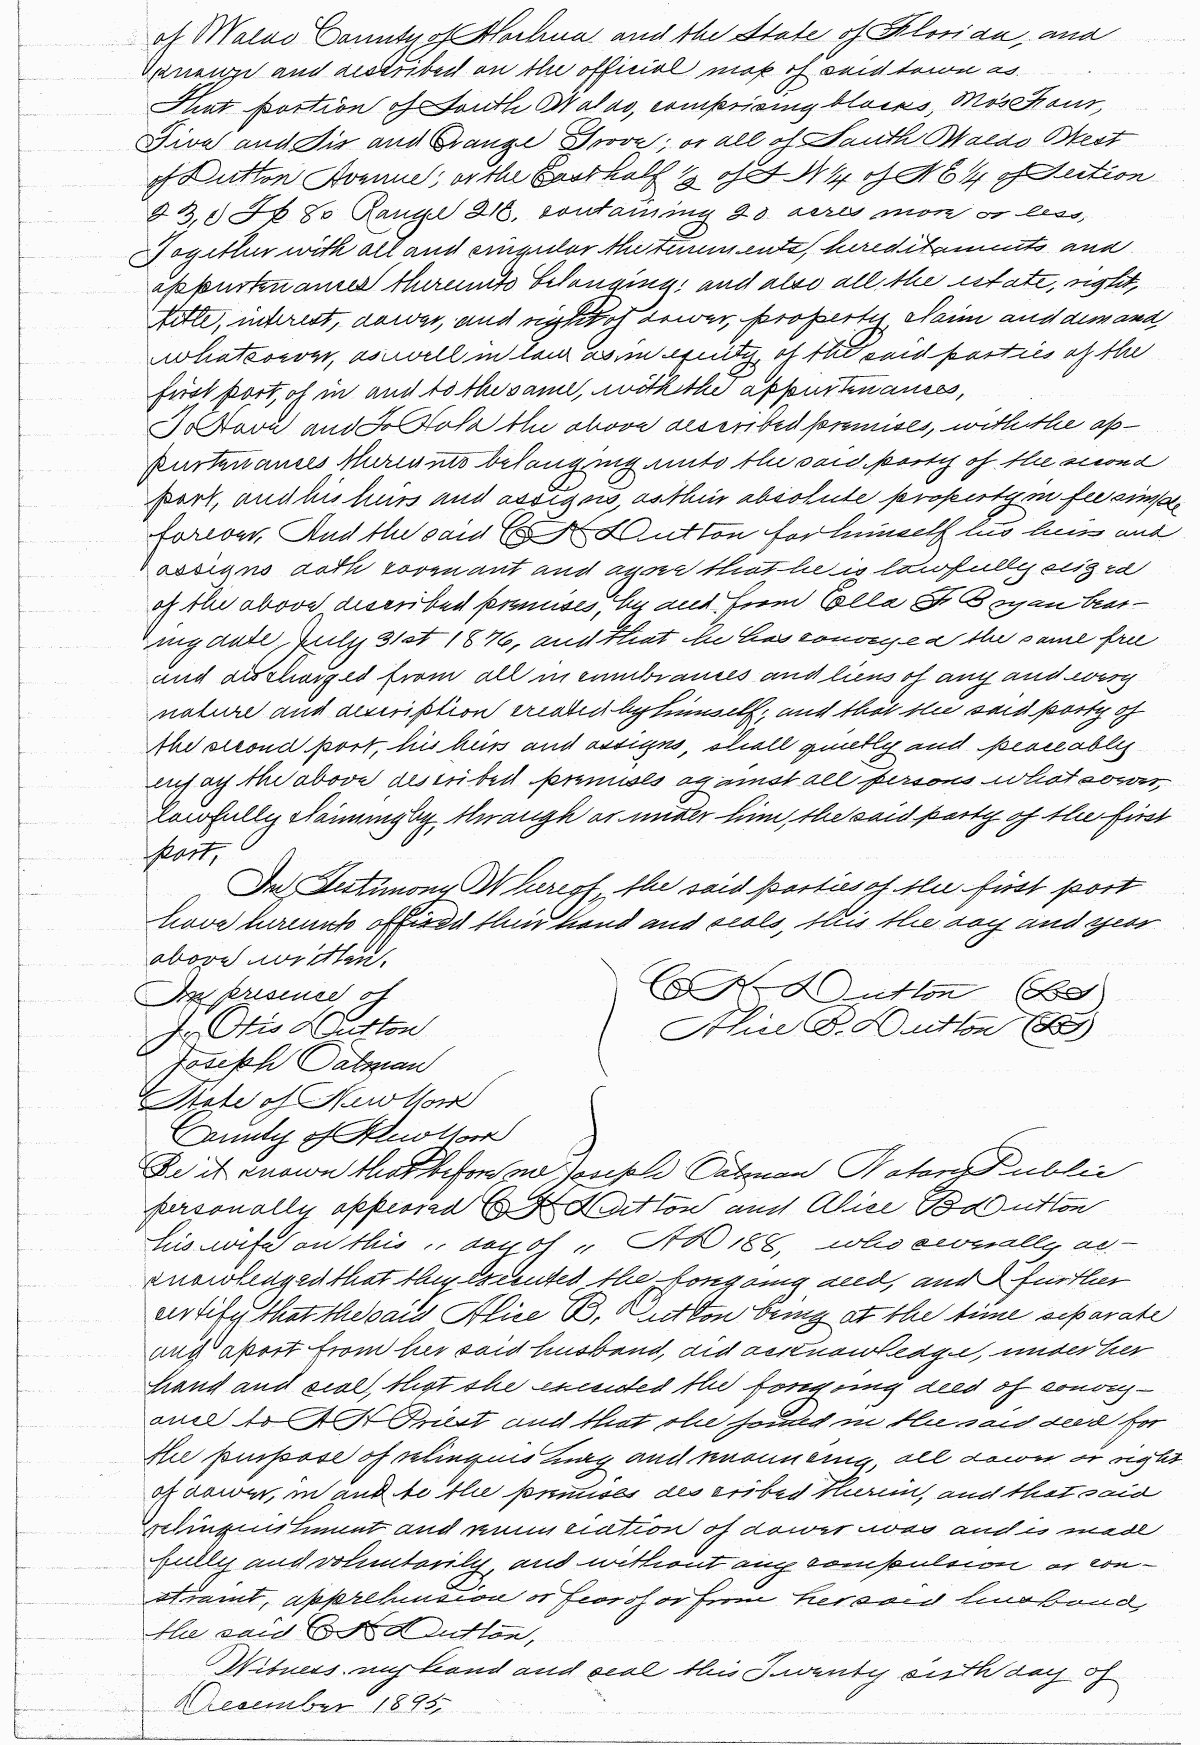 of Waldo County of Alachua and the State of Florida, and
known and described on the official map of said town as
That portion of South Waldo, comprising blocks, Nos Four,
Five and Six and Orange Grove; or all of South Waldo West
of Dutton Avenue; or the East half ½ of S W¼ of N E¼ of Section
23, Tp 8s Range 21E, containing 20 acres more or less,
Together with all and singular the tenements, hereditaments and
appurtenances thereunto belonging: and also all the estate, right,
title, interest, dower, and right of dower, property, claim and demand,
whatsoever, as well in law as in equity, of the said parties of the
first part, of in and to the same, with the appurtenances,
To Have and To Hold the above described premises, with the ap-
purtenances thereunto belonging unto the said party of the second
part, and his heirs and assigns, as their absolute property in fee simple
forever. And the said C K Dutton for himself his heirs and
assigns doth covenant and agree that he is lawfully seized
of the above described premises, by deed from Ella F Bryan bear-
ing date, July 31st 1876, and that he has conveyed the same free
and discharged from all incumbrances and liens of any and every
nature and description created by himself; and that the said party of
the second part, his heirs and assigns, shall quietly and peaceably
enjoy the above described premises against all persons whatsoever,
lawfully claiming by, through or under him, the said party of the first
part,
In Testimony Whereof, the said parties of the first part
have hereunto affixed their hand and seals, this the day and year
above written.
In presence of
C K Dutton (LS)
J. Otis Dutton
Alice B. Dutton (LS)
Joseph Oatman
State of New York
County of New York
Be it known that before me Joseph Oatman Notary Public
personally appeared C K Dutton and Alice B Dutton
his wife on this " day of " AD 188, who severally ac-
knowledged that they executed the foregoing deed, and I further
certify that the said Alice B. Dutton being at the time separate
and apart from her said husband, did acknowledge, under her
hand and seal, that she executed the foregoing deed of convey-
ance to A H Priest and that she joined in the said deed for
the purpose of relinquishing and renouncing, all dower or right
of dower, in and to the premises described therein, and that said
relinquishment and renunciation of dower was and is made
fully and voluntarily, and without any compulsion or con-
straint, apprehension or fear of or from her said husband,
the said C K Dutton,
Witness my hand and seal this Twenty sixth day of
December 1895,